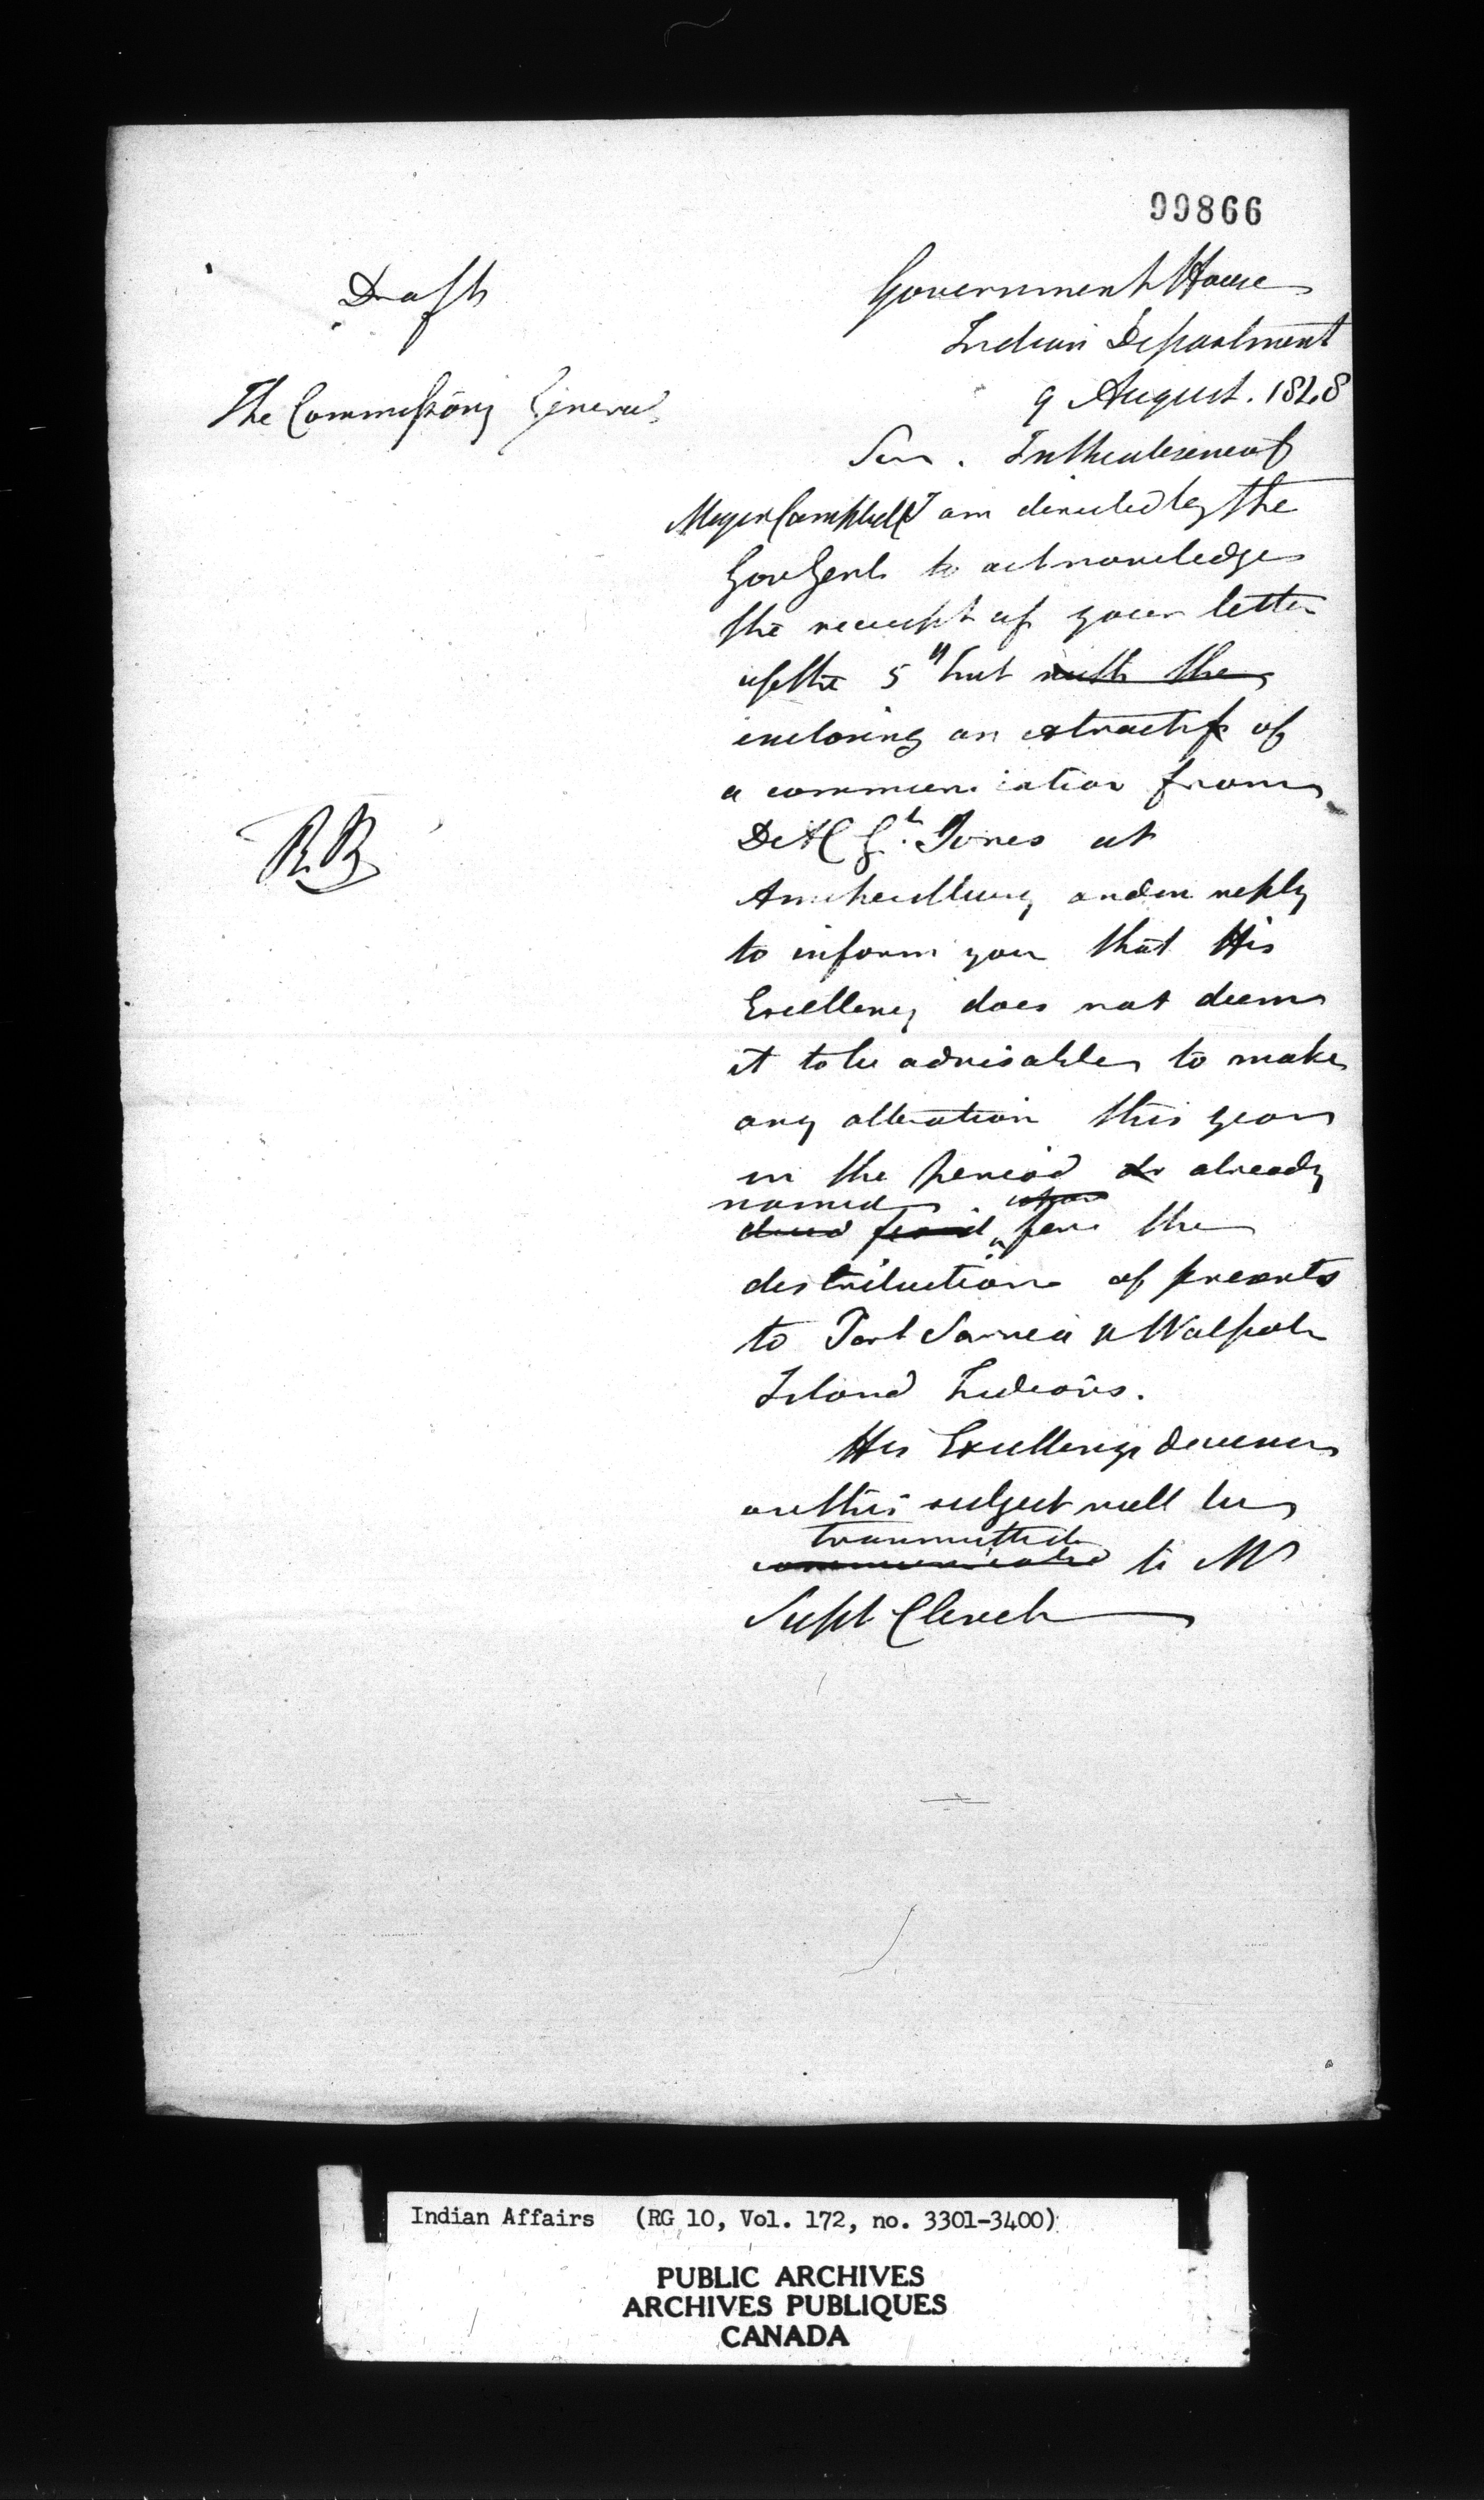 99866
Draft
Government House
Indian Department
9 August. 1848
The Commissary General
Sir. In the absence of
Major Campbell I am directed by the
Gov Genl to acknowledge
the receipt of your letter
of the 5th Inst with the
enclosing an extract of
a communication from
D A C Gl. Jones at
Amherstburg and in reply
to inform you that His
Excellency does not deem
it to be advisable to make
any alteration this year
in the period already
named
for the
distribution of presents
to Port Sarnia & Walpole
Island Indians.
RB
His Excellency's decision
on this subject will be
transmitted
communicated to Mr
Supt Clench
Indian Affairs (RG 10, Vol. 172, no. 3301-3400)
PUBLIC ARCHIVES
ARCHIVES PUBLIQUES
CANADA